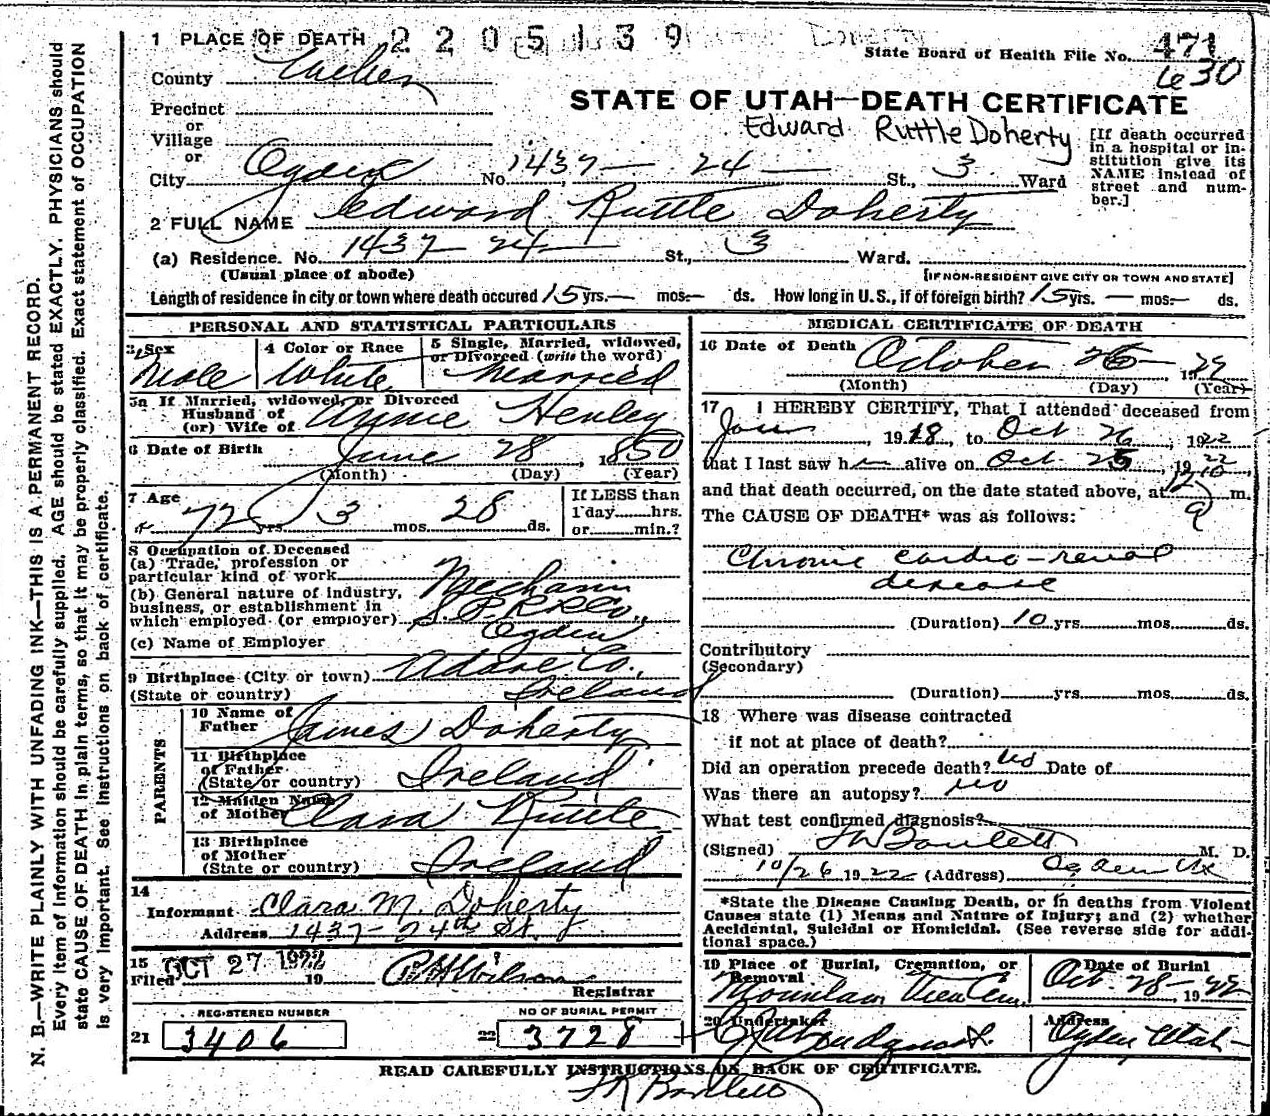 N. B.—WRITE PLAINLY WITH UNFADING INK—THIS IS A PERMANENT RECORD.
Every item of Information should be carefully supplied. AGE should be stated EXACTLY. PHYSICIANS should
state CAUSE OF DEATH in plain terms, so that it may be properly classified. Exact statement of OCCUPATION
is very important. See Instructions on back of certificate.
1 PLACE OF DEATH 2205139
State Board of Health File No. 471
630
County
STATE OF UTAH—DEATH CERTIFICATE
Precinct
or
Village
or
Edward Ruttle Doherty
[If death occurred
in a hospital or in-
stitution give its
NAME instead of
street and num-
ber.]
City Ogden No. 1437 — 24 — St., 3 Ward
2 FULL NAME Edward Ruttle Doherty
(a) Residence. No. 1437 — 24 — St., 3 Ward.
(Usual place of abode) [IF NON-RESIDENT GIVE CITY OR TOWN AND STATE]
Length of residence in city or town where death occured 15 yrs. — mos. — ds. How long in U.S., if of foreign birth? 15 yrs. — mos. — ds.
PERSONAL AND STATISTICAL PARTICULARS
3 Sex
Male
4 Color or Race
White
5 Single, Married, widowed,
or Divorced (write the word)
Married
5a If Married, widowed, or Divorced
Husband of
(or) Wife of Annie Henley
6 Date of Birth June 28, 1850
(Month) (Day) (Year)
7 Age
72 yrs. 3 mos. 28 ds.
If LESS than
1 day hrs.
or min.?
8 Occupation of Deceased
(a) Trade, profession or
particular kind of work Mechanic
(b) General nature of industry,
business, or establishment in
which employed (or employer) S.P.R.R.Co.,
Ogden
(c) Name of Employer
9 Birthplace (City or town) Adare Co.,
(State or country) Ireland
PARENTS
10 Name of
Father James Doherty
11 Birthplace
of Father
(State or country) Ireland
12 Maiden Name
of Mother Clara Ruttle
13 Birthplace
of Mother
(State or country) Ireland
14
Informant Clara M. Doherty
Address 1437 — 24th St.
15
Filed OCT 27 1922 19
Registrar
REGISTERED NUMBER
21 3406
NO OF BURIAL PERMIT
22 3728
MEDICAL CERTIFICATE OF DEATH
16 Date of Death October 26 — 19
(Month) (Day) (Year)
17 I HEREBY CERTIFY, That I attended deceased from
Jan, 1918, to Oct 26, 1922
that I last saw h alive on Oct 25, 1922
and that death occurred, on the date stated above, at m.
The CAUSE OF DEATH* was as follows:
Chronic cardio-renal
disease
(Duration) 10 yrs. mos. ds.
Contributory
(Secondary)
(Duration) yrs. mos. ds.
18 Where was disease contracted
if not at place of death?
Did an operation precede death? no Date of
Was there an autopsy? no
What test confirmed diagnosis?
(Signed) M. D.
10/26 1922 (Address) Ogden Ut
*State the Disease Causing Death, or in deaths from Violent
Causes state (1) Means and Nature of Injury; and (2) whether
Accidental, Suicidal or Homicidal. (See reverse side for addi-
tional space.)
19 Place of Burial, Cremation, or
Removal
Mountain View Cem.
Date of Burial
Oct. 28, 1922
20 Undertaker
Address
Ogden, Utah
READ CAREFULLY INSTRUCTIONS ON BACK OF CERTIFICATE.